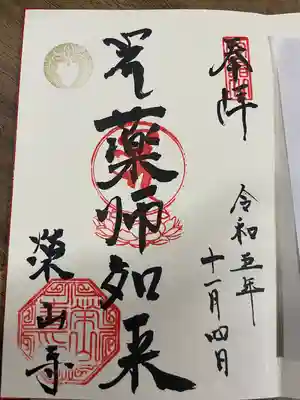 奉拝
令和五年
十一月四日
薬師如来
榮山寺